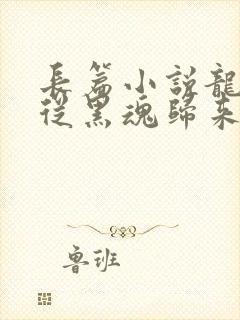 長篇小說龍
從黑魂歸來
魯班